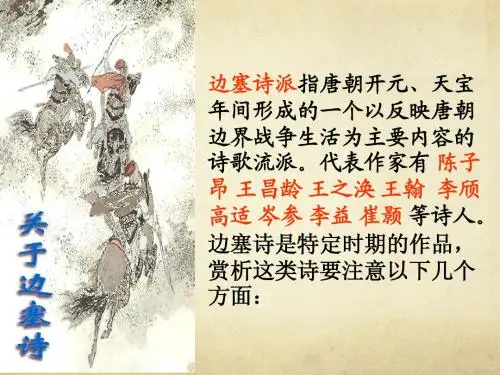 关于边塞诗
边塞诗派指唐朝开元、天宝
年间形成的一个以反映唐朝
边界战争生活为主要内容的
诗歌流派。代表作家有 陈子
昂 王昌龄 王之涣 王翰 李颀
高适 岑参 李益 崔颢 等诗人。
边塞诗是特定时期的作品，
赏析这类诗要注意以下几个
方面：